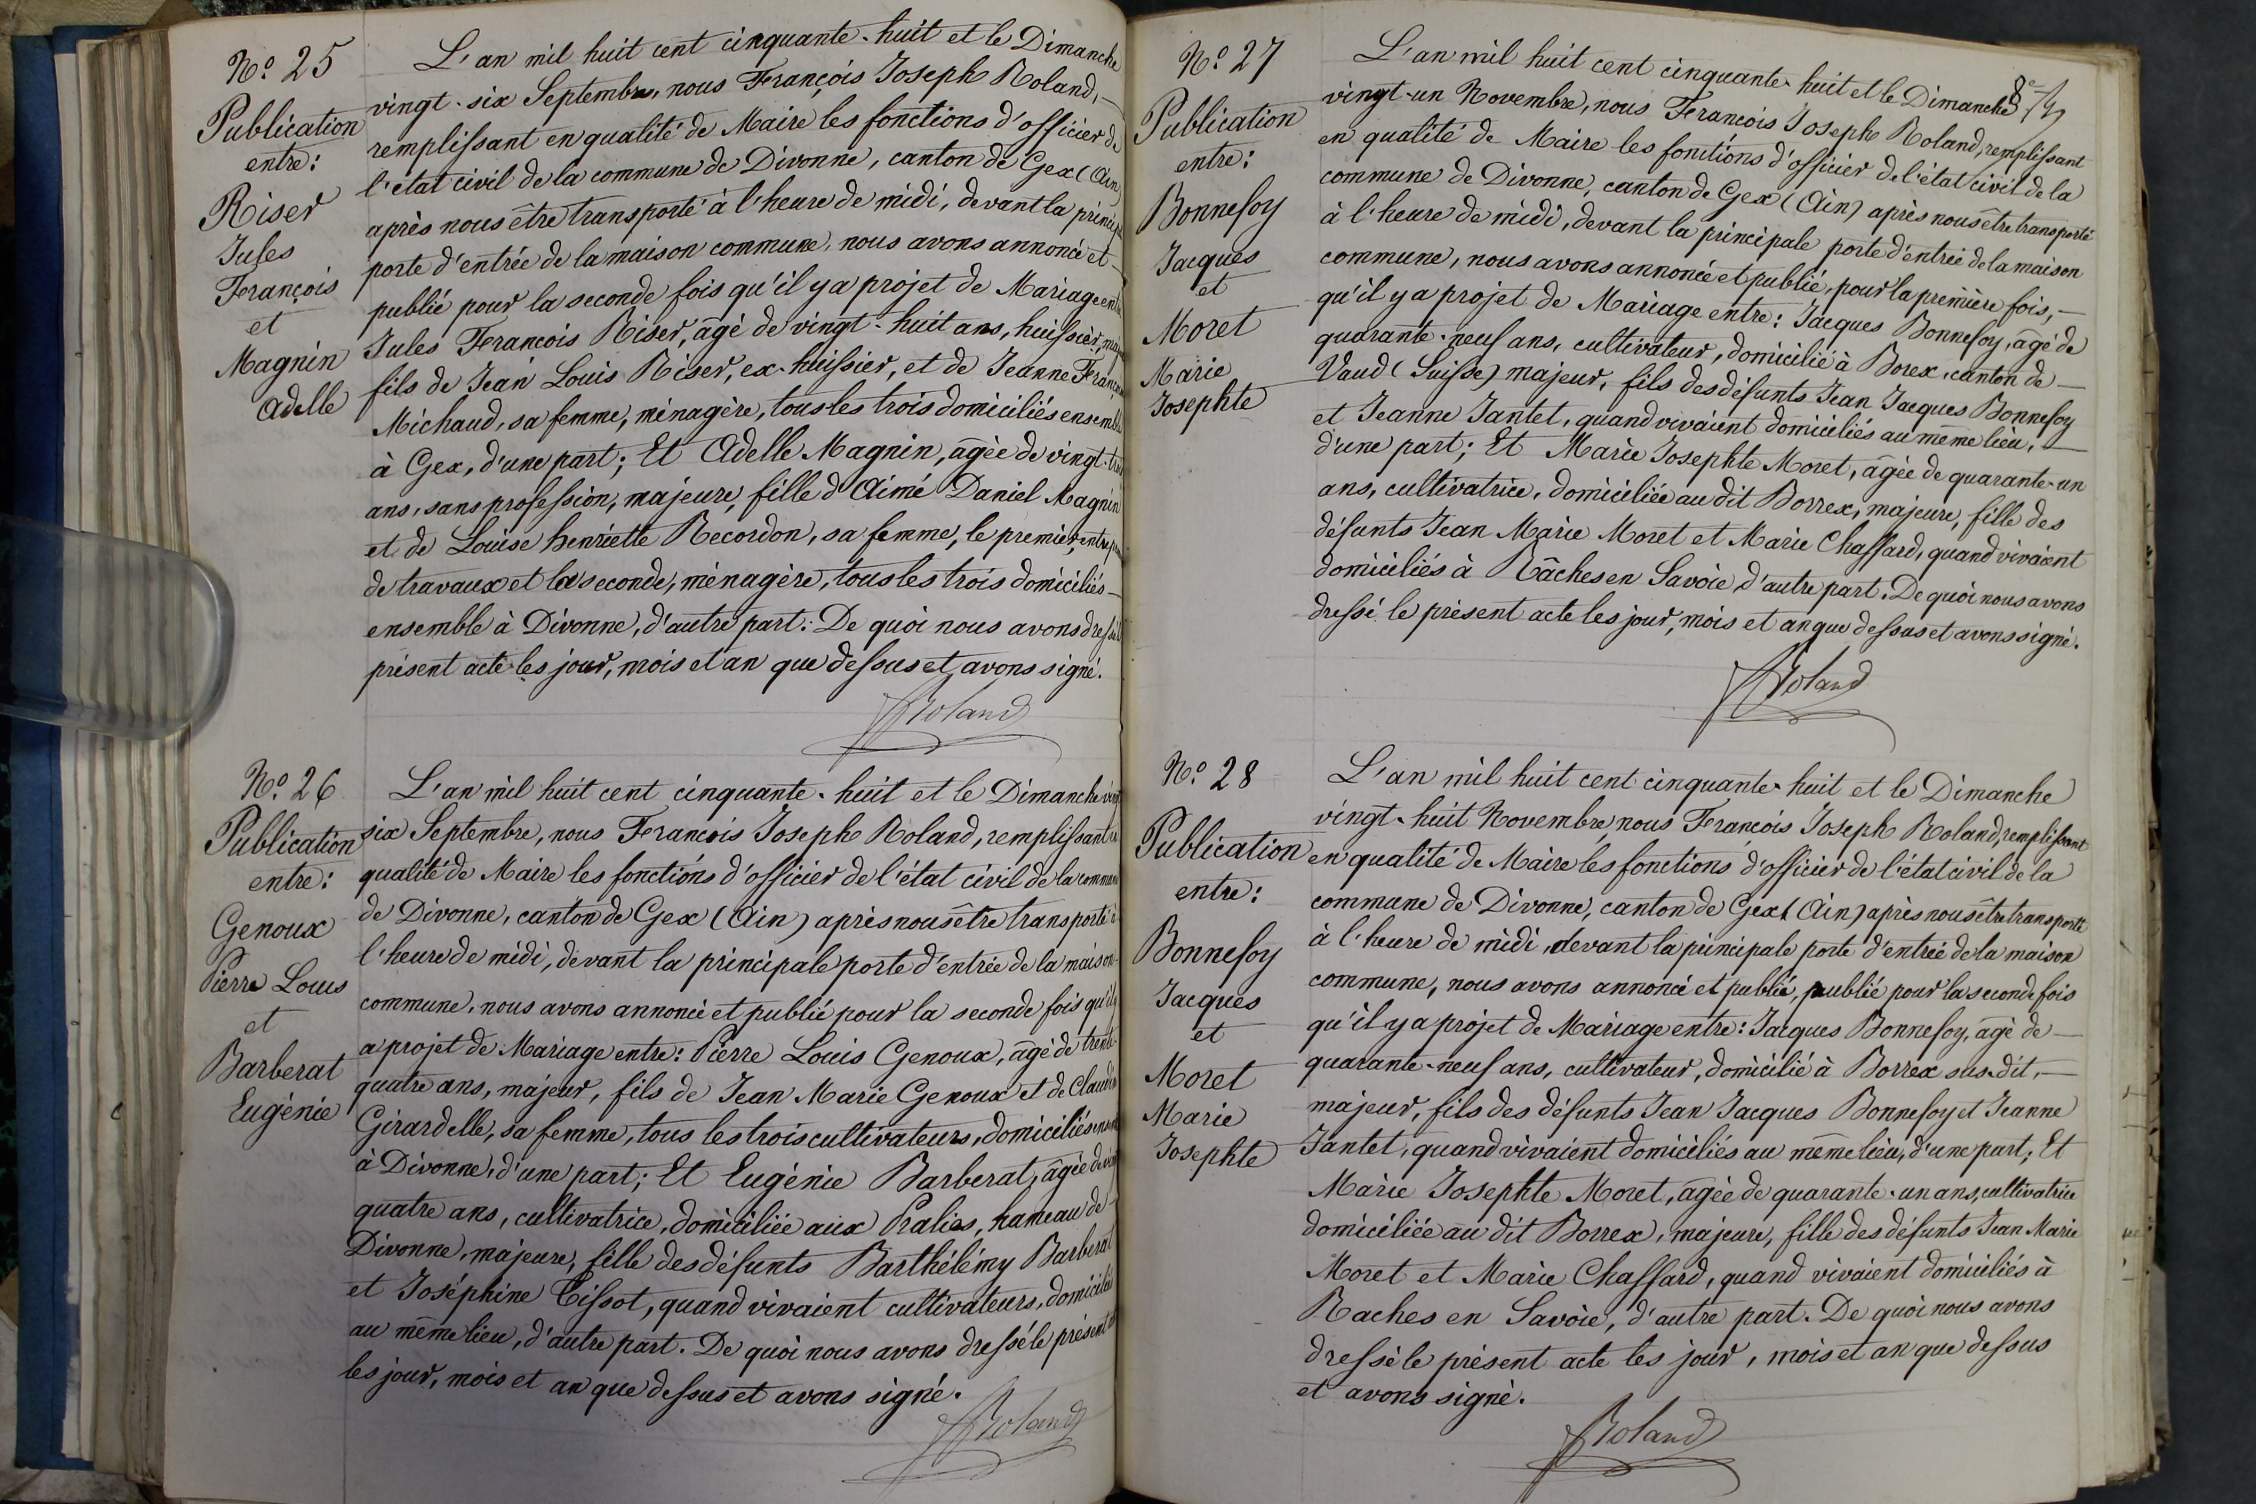 Nº 25
Publication
entre:
Riser
Jules
François
et
Magnin
Adelle
L'an mil huit cent cinquante-huit et le Dimanche
vingt-six Septembre, nous François Joseph Roland, —
remplissant en qualité de Maire les fonctions d'officier de
l'état civil de la commune de Divonne, canton de Gex (Ain
après nous être transporté à l'heure de midi, devant la
porte d'entrée de la maison commune, nous avons annoncé et —
publié pour la seconde fois qu'il y a projet de Mariage
Jules François Riser, âgé de vingt-huit ans, huissier,
fils de Jean Louis Riser, ex-huissier, et de Jeanne
Michaud, sa femme, ménagère, tous les trois domiciliés
à Gex, d'une part; Et Adelle Magnin, âgée de vingt-
ans, sans profession, majeure, fille d'Aimé Daniel Magnin
et de Louise henriette Recordon, sa femme, le premier,
de travaux et la seconde, ménagère, tous les trois domiciliés —
ensemble à Divonne, d'autre part: De quoi nous avons
présent acte les jour, mois et an que dessus et avons signé.
Roland
Nº 26
Publication
entre:
Genoux
Pierre Louis
et
Barberat
Eugénie
L'an mil huit cent cinquante-huit et le Dimanche
six Septembre, nous François Joseph Roland, remplissant
qualité de Maire les fonctions d'officier de l'état civil de la
de Divonne, canton de Gex (Ain) après nous être transporté à
l'heure de midi, devant la principale porte d'entrée de la maison
commune, nous avons annoncé et publié pour la seconde fois
a projet de Mariage entre: Pierre Louis Genoux, âgé de trente-
quatre ans, majeur, fils de Jean Marie Genoux et de
Girardelle, sa femme, tous les trois cultivateurs, domiciliés
à Divonne, d'une part; Et Eugénie Barberat, âgée de
quatre ans, cultivatrice, domiciliée aux Pralies, hameau de
Divonne, majeure, fille des défunts Barthélémy Barberat
et Joséphine Tissot, quand vivaient cultivateurs,
au même lieu, d'autre part. De quoi nous avons dressé le présent
les jour, mois et an que dessus et avons signé.
Roland
Nº 27
Publication
entre:
Bonnefoy
Jacques
et
Moret
Marie
Josephte
L'an mil huit cent cinquante-huit et le Dimanche
vingt-un Novembre, nous François Joseph Roland, remplissant
en qualité de Maire les fonctions d'officier de l'état civil de la
commune de Divonne, canton de Gex (Ain) après nous être transporté
à l'heure de midi, devant la principale porte d'entrée de la maison
commune, nous avons annoncé et publié, pour la première fois, —
qu'il y a projet de Mariage entre: Jacques Bonnefoy, âgé de
quarante-neuf ans, cultivateur, domicilié à Borex, canton de —
Vaud (Suisse) majeur, fils des défunts Jean Jacques Bonnefoy
et Jeanne Jantet, quand vivaient domiciliés au même lieu, —
d'une part; Et Marie Josephte Moret, âgée de quarante-un
ans, cultivatrice, domiciliée au dit Borrex, majeure, fille des
défunts Jean Marie Moret et Marie Chaffard, quand vivaient
domiciliés à Râches en Savoie, d'autre part. De quoi nous avons
dressé le présent acte les jour, mois et an que dessus et avons signé.
Roland
Nº 28
Publication
entre:
Bonnefoy
Jacques
et
Moret
Marie
Josephte
L'an mil huit cent cinquante-huit et le Dimanche
vingt-huit Novembre, nous François Joseph Roland, remplissant
en qualité de Maire les fonctions d'officier de l'état civil de la
commune de Divonne, canton de Gex (Ain) après nous être transporté
à l'heure de midi, devant la principale porte d'entrée de la maison
commune, nous avons annoncé et publié, publié pour la seconde fois
qu'il y a projet de Mariage entre: Jacques Bonnefoy, âgé de —
quarante-neuf ans, cultivateur, domicilié à Borrex sus-dit, —
majeur, fils des défunts Jean Jacques Bonnefoy et Jeanne
Jantet, quand vivaient domiciliés au même lieu, d'une part; Et
Marie Josephte Moret, âgée de quarante-un ans, cultivatrice
domiciliée au dit Borrex, majeure, fille des défunts Jean Marie
Moret et Marie Chaffard, quand vivaient domiciliés à
Raches en Savoie, d'autre part. De quoi nous avons
dressé le présent acte les jour, mois et an que dessus
et avons signé.
Roland